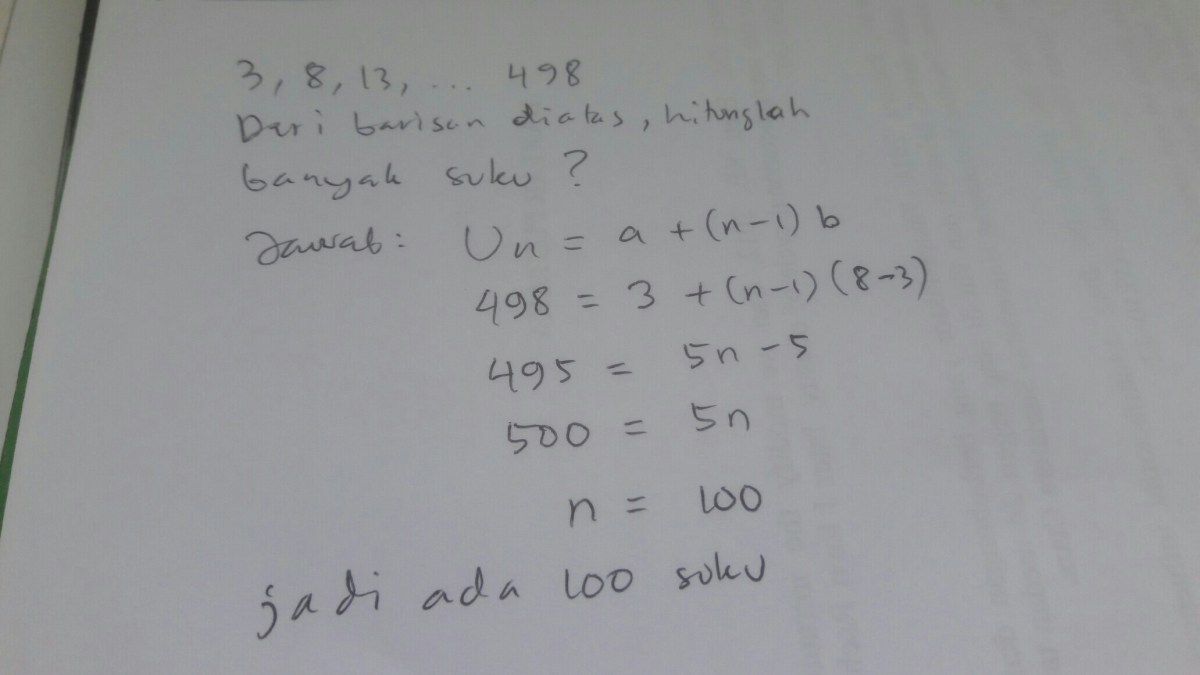 3, 8, 13, ... 498
Dari barisan diatas, hitunglah
banyak suku ?
Jawab: Un = a + (n-1) b
498 = 3 + (n-1) (8-3)
495 = 5n - 5
500 = 5n
n = 100
jadi ada 100 suku